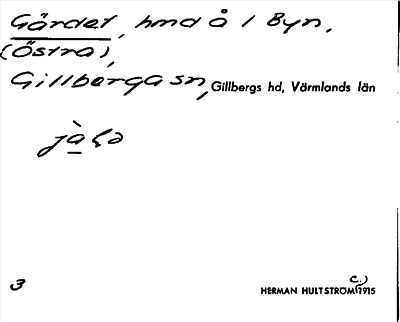 Gärdet, hmd å 1 Byn,
(Östra),
Gillberga sn, Gillbergs hd, Värmlands län
3
HERMAN HULTSTRÖM (c.) 1915